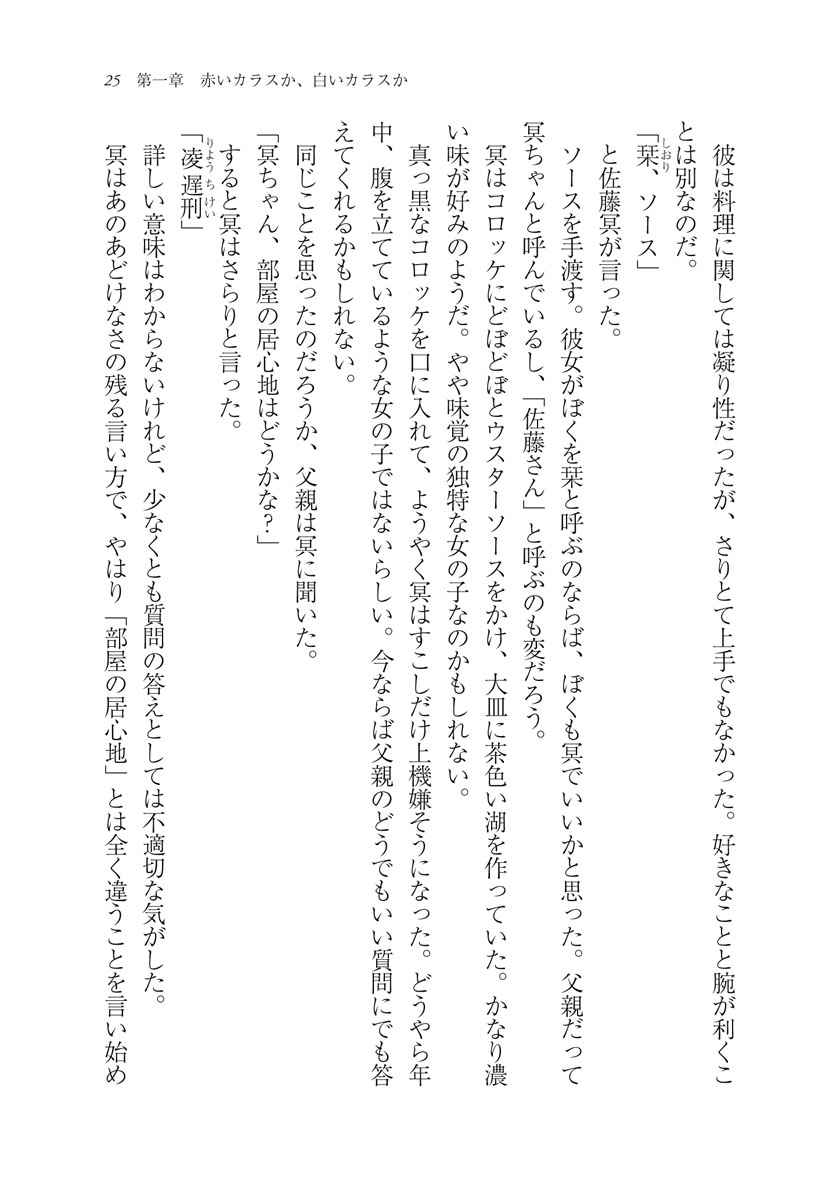 25 第一章 赤いカラスか、白いカラスか
彼は料理に関しては凝り性だったが、さりとて上手でもなかった。好きなことと腕が利くこ
とは別なのだ。
「栞、ソース」
しおり
と佐藤冥が言った。
ソースを手渡す。彼女がぼくを栞と呼ぶのならば、ぼくも冥でいいかと思った。父親だって
冥ちゃんと呼んでいるし、「佐藤さん」と呼ぶのも変だろう。
冥はコロッケにどぼどぼとウスターソースをかけ、大皿に茶色い湖を作っていた。かなり濃
い味が好みのようだ。やや味覚の独特な女の子なのかもしれない。
真っ黒なコロッケを口に入れて、ようやく冥はすこしだけ上機嫌そうになった。どうやら年
中、腹を立てているような女の子ではないらしい。今ならば父親のどうでもいい質問にでも答
えてくれるかもしれない。
同じことを思ったのだろうか、父親は冥に聞いた。
「冥ちゃん、部屋の居心地はどうかな?」
すると冥はさらりと言った。
「凌遅刑」
りようちけい
詳しい意味はわからないけれど、少なくとも質問の答えとしては不適切な気がした。
冥はあのあどけなさの残る言い方で、やはり「部屋の居心地」とは全く違うことを言い始め